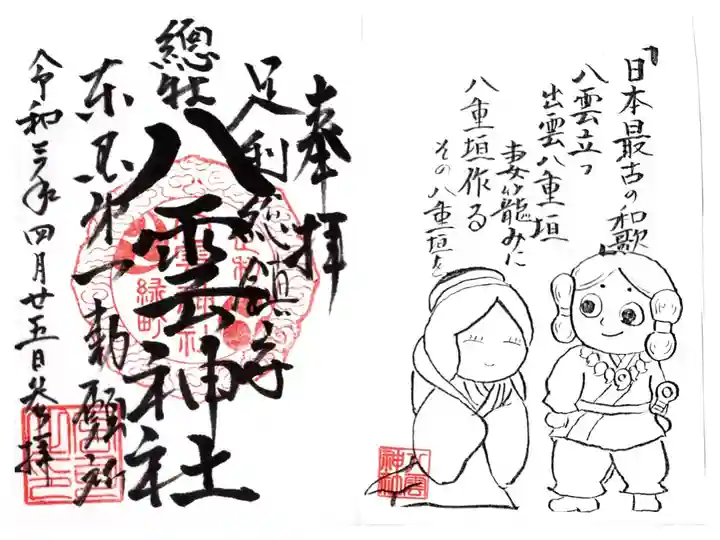 奉拝
足利総鎮守
總社
八雲神社
東国第一勅願所
令和三年四月廿五日参拝
緑町
「日本最古の和歌」
八雲立つ
出雲八重垣
妻籠みに
八重垣作る
その八重垣を
八雲神社